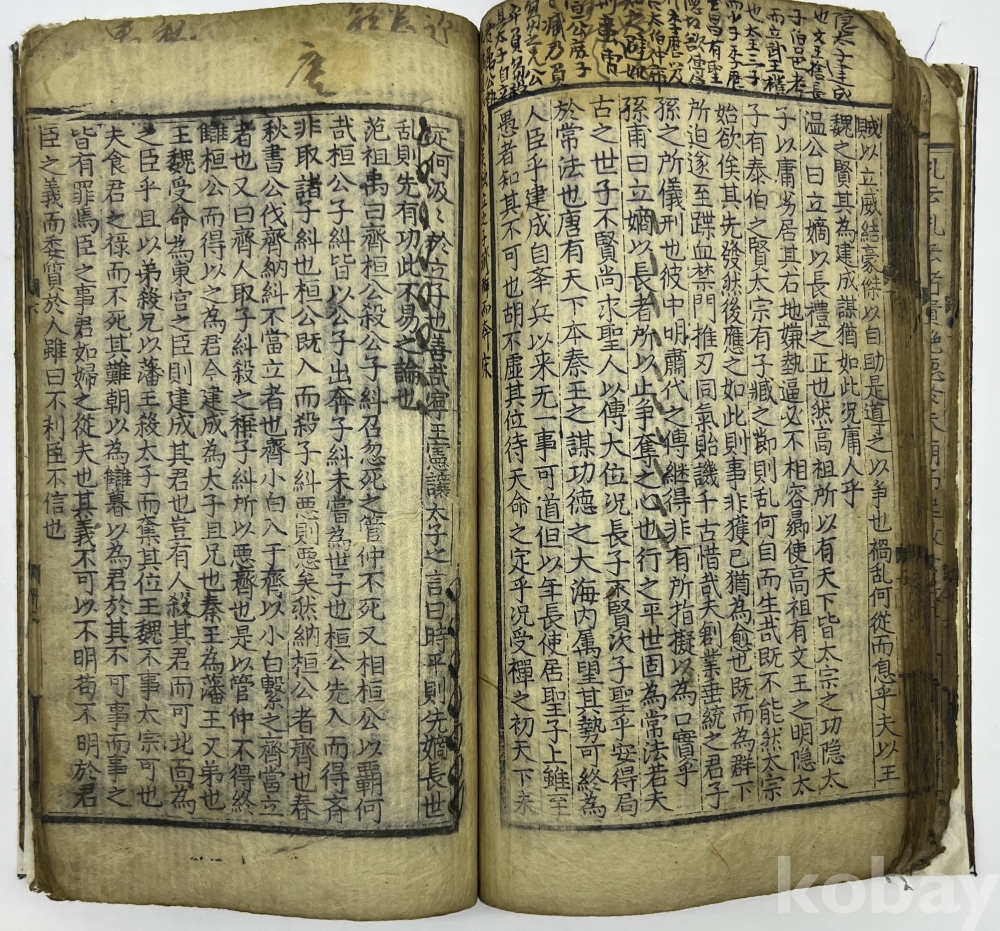 也文王捨長
子伯邑考
而立武王權
也太王三子
而少子季歴
生昌有聖
賊以立威結豪傑以自助是道之以争也禍乱何從而息乎夫以王
魏之賢其為建成謀猶如此况庸人乎
温公曰立嫡以長禮之正也然高祖所以有天下皆太宗之功隐太
子以庸劣居其右地嫌勢逼必不相容曏使高祖有文王之明隐太
子有泰伯之賢太宗有子臧之節則乱何自而生哉既不能然太宗
始欲俟其先發然後應之如此則事非獲已猶為愈也既而為群下
所迫逐至蹀血禁門推刃同氣貽譏千古惜哉夫創業垂統之君子
孫之所儀刑也彼中明肅代之傳継得非有所指擬以為口實乎
孫甫曰立嫡以長者所以止争奪之心也行之平世固為常法若夫
古之世子不賢尚求聖人以傳大位况長子不賢次子聖乎安得局
於常法也唐有天下本秦王之謀功德之大海内属望其勢可終為
人臣乎建成自举兵以来无一事可道但以年長使居聖子上雖至
愚者知其不可也胡不虚其位待天命之定乎况受禪之初天下未
唐
定何汲〻於立子也善哉寧王憲讓太子之言曰時平則先嫡長世
乱則先有功此不易之論也
范祖禹曰齊桓公殺公子糾召忽死之管仲不死又相桓公以霸何
哉桓公子糾皆以公子出奔子糾未嘗為世子也桓公先入而得斉
非取諸子糾也桓公既入而殺子糾悪則悪矣然納桓公者齊也春
秋書公伐齊納糾不當立者也齊小白入于齊以小白繫之齊當立
者也又曰齊人取子糾殺之稱子糾所以悪齊也是以管仲不得終
讎桓公而得以之為君今建成為太子且兄也秦王為藩王又弟也
王魏受命為東宮之臣則建成其君也豈有人殺其君而可北面為
之臣乎且以弟殺兄以藩王殺太子而奪其位王魏不事太宗可也
夫食君之禄而不死其難朝以為讎暮以為君於其不可事而事之
皆有罪焉臣之事君如婦之從夫也其義不可以不明苟不明於君
臣之義而委質於人雖曰不利臣不信也
kobay